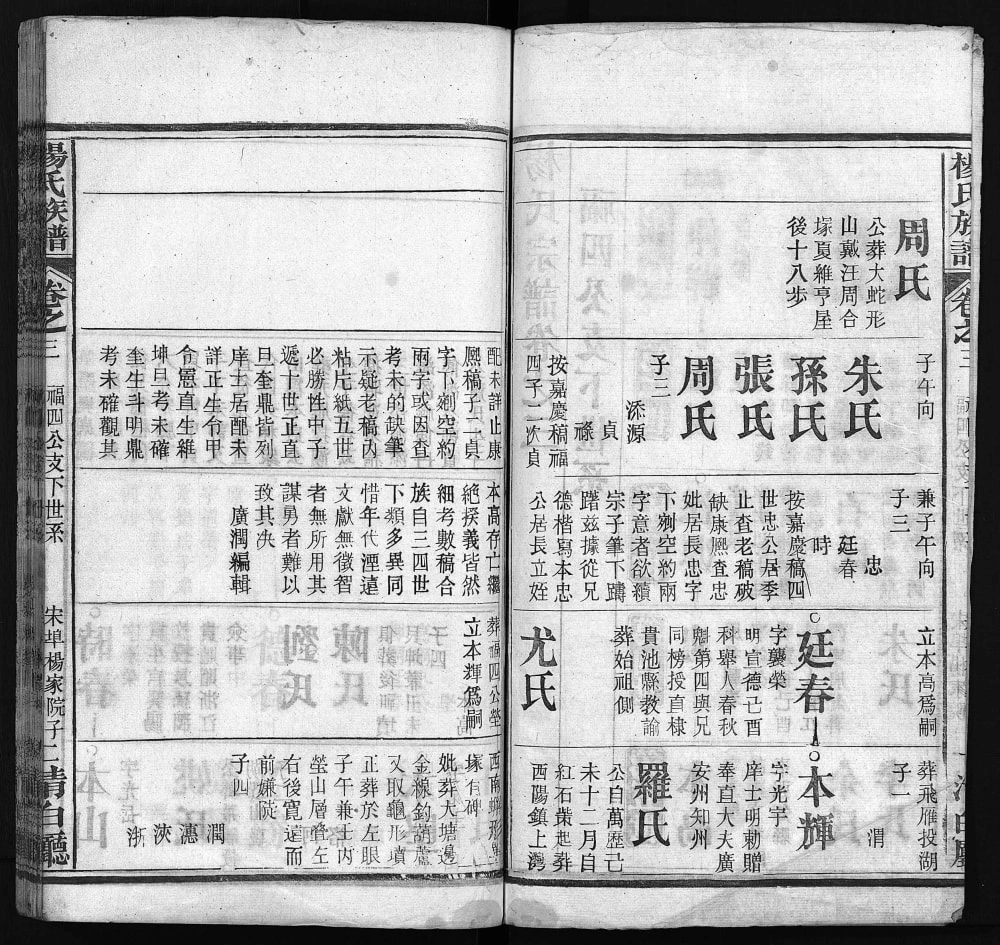 楊氏族譜 卷之三
周氏
公葬大蛇形
山戴汪周合
塚夏維亨屋
後十八步
子午向
朱氏
孫氏
張氏
周氏
子三
添源
貞
祿
按嘉慶稿福
四子二次貞
配未詳止康
熈稿子二貞
字下剜空約
兩字或因查
考未的缺筆
示疑老稿內
粘片紙五世
必勝性中子
遞十世正直
旦奎鼎皆列
庠士居配未
詳正生令甲
令憲直生維
坤旦考未確
奎生斗明鼎
考未確觀其
兼子午向
子三
忠
廷春
時
按嘉慶稿四
世忠公居季
止查老稿破
缺康熈查忠
妣居長忠字
下剜空約兩
字意者欲續
宗子筆下躊
躇茲據從兄
德楷寫本忠
公居長立姪
本高存亡繼
絕揆義皆然
細考數稿合
族自三四世
下類多異同
惜年代湮遠
文獻無徵智
者無所用其
謀勇者難以
致其決
廣潤編輯
立本高爲嗣
廷春
字襲榮
明宣德己酉
科舉人春秋
魁第四與兄
同榜授直棣
貴池縣教諭
葬始祖側
尤氏
葬福四公塋
立本輝爲嗣
葬飛雁投湖
子一
渭
本輝
字光宇
庠士明勅贈
奉直大夫廣
安州知州
羅氏
公自萬歷己
未十二月自
紅石起葬
西陽鎮上灣
西南形
塚有碑
妣葬大塘邊
金線釣葫蘆
又取龜形墳
正葬於左眼
子午兼壬丙
塋山層疊左
右後寬遠而
前嫌陡
子四
潤
憓
浹
浙
楊氏族譜 卷之三 福四公支下世系 宋埠楊家院子 二 清白廳